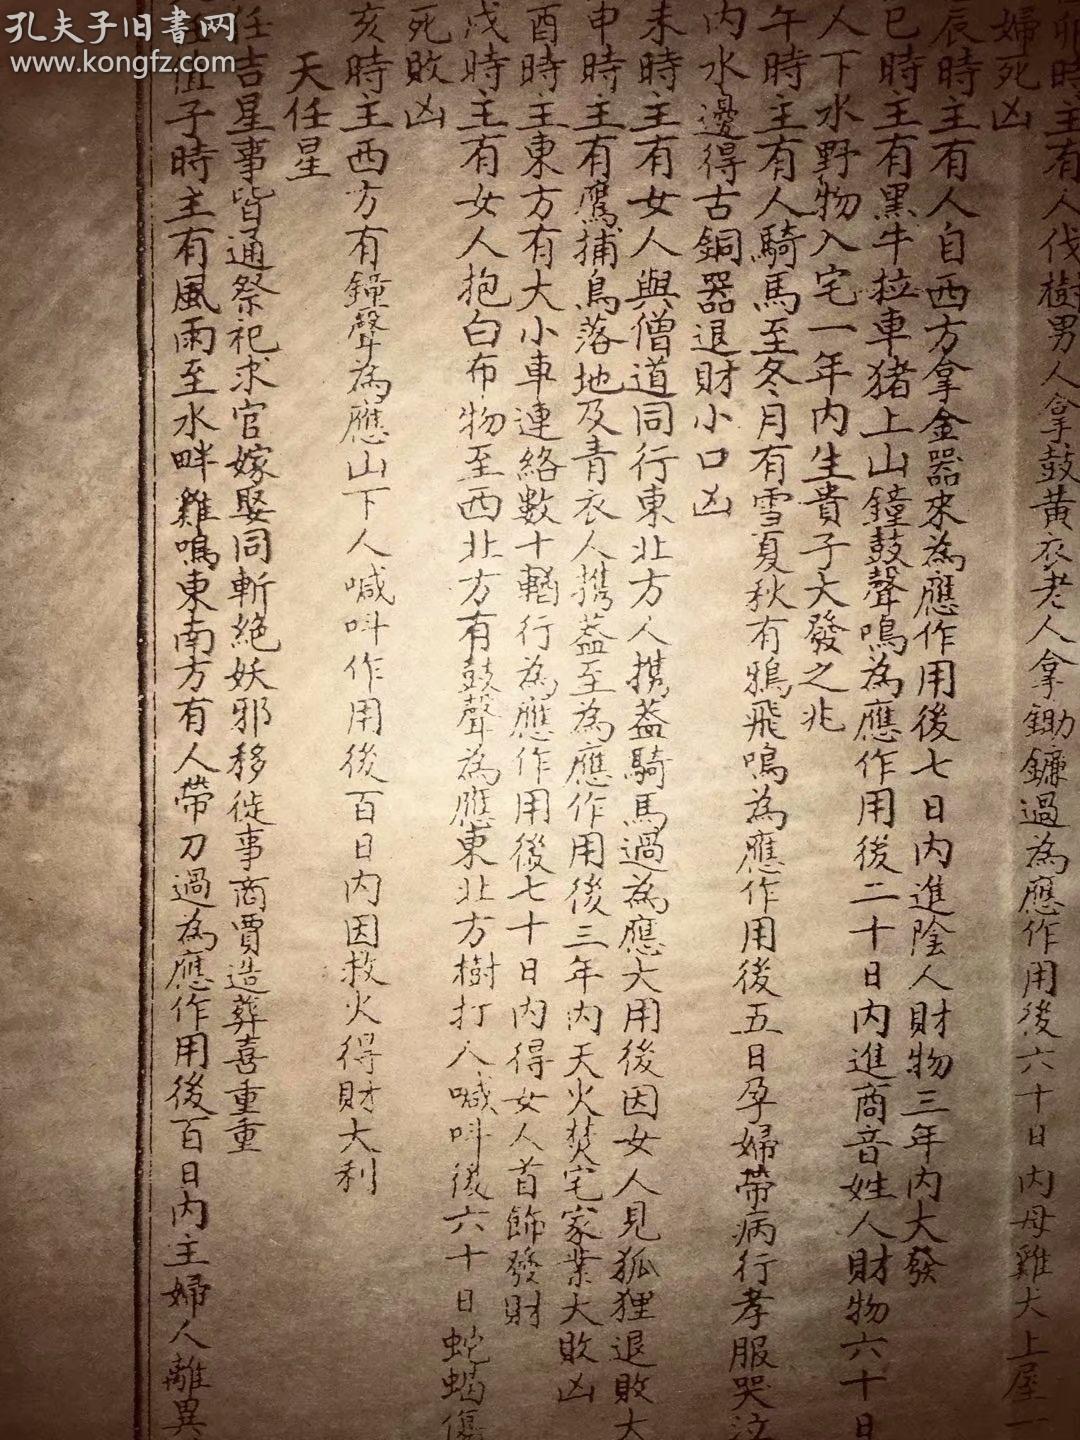 孔夫子旧書网
www.kongfz.com
卯時主有人伐樹男人拿鼓黃衣老人拿鋤鐮過為應作用後六十日內母雞犬上屋一
婦死凶
辰時主有人自西方拿金器來為應作用後七日內進陰人財物三年內大發
巳時主有黑牛拉車猪上山鐘鼓聲鳴為應作用後二十日內進商音姓人財物六十日
人下水野物入宅一年內生貴子大發之兆
午時主有人騎馬至冬月有雪夏秋有鴉飛鳴為應作用後五日孕婦帶病行孝服哭泣
內水邊得古銅器退財小口凶
未時主有女人與僧道同行東北方人携蓋騎馬過為應大用後因女人見狐狸退敗大
申時主有鷹捕鳥落地及青衣人携蓋至為應作用後三年內天火焚宅家業大敗凶
酉時主東方有大小車連絡數十輛行為應作用後七十日內得女人首飾發財
戌時主有女人抱白布物至西北方有鼓聲為應東北方樹打人喊叫後六十日蛇蝎傷
死敗凶
亥時主西方有鐘聲為應山下人喊叫作用後百日內因救火得財大利
天任星
任吉星事皆通祭祀求官嫁娶同斬絕妖邪移徙事商賈造葬喜重重
值子時主有風雨至水畔雞鳴東南方有人帶刀過為應作用後百日內主婦人離異